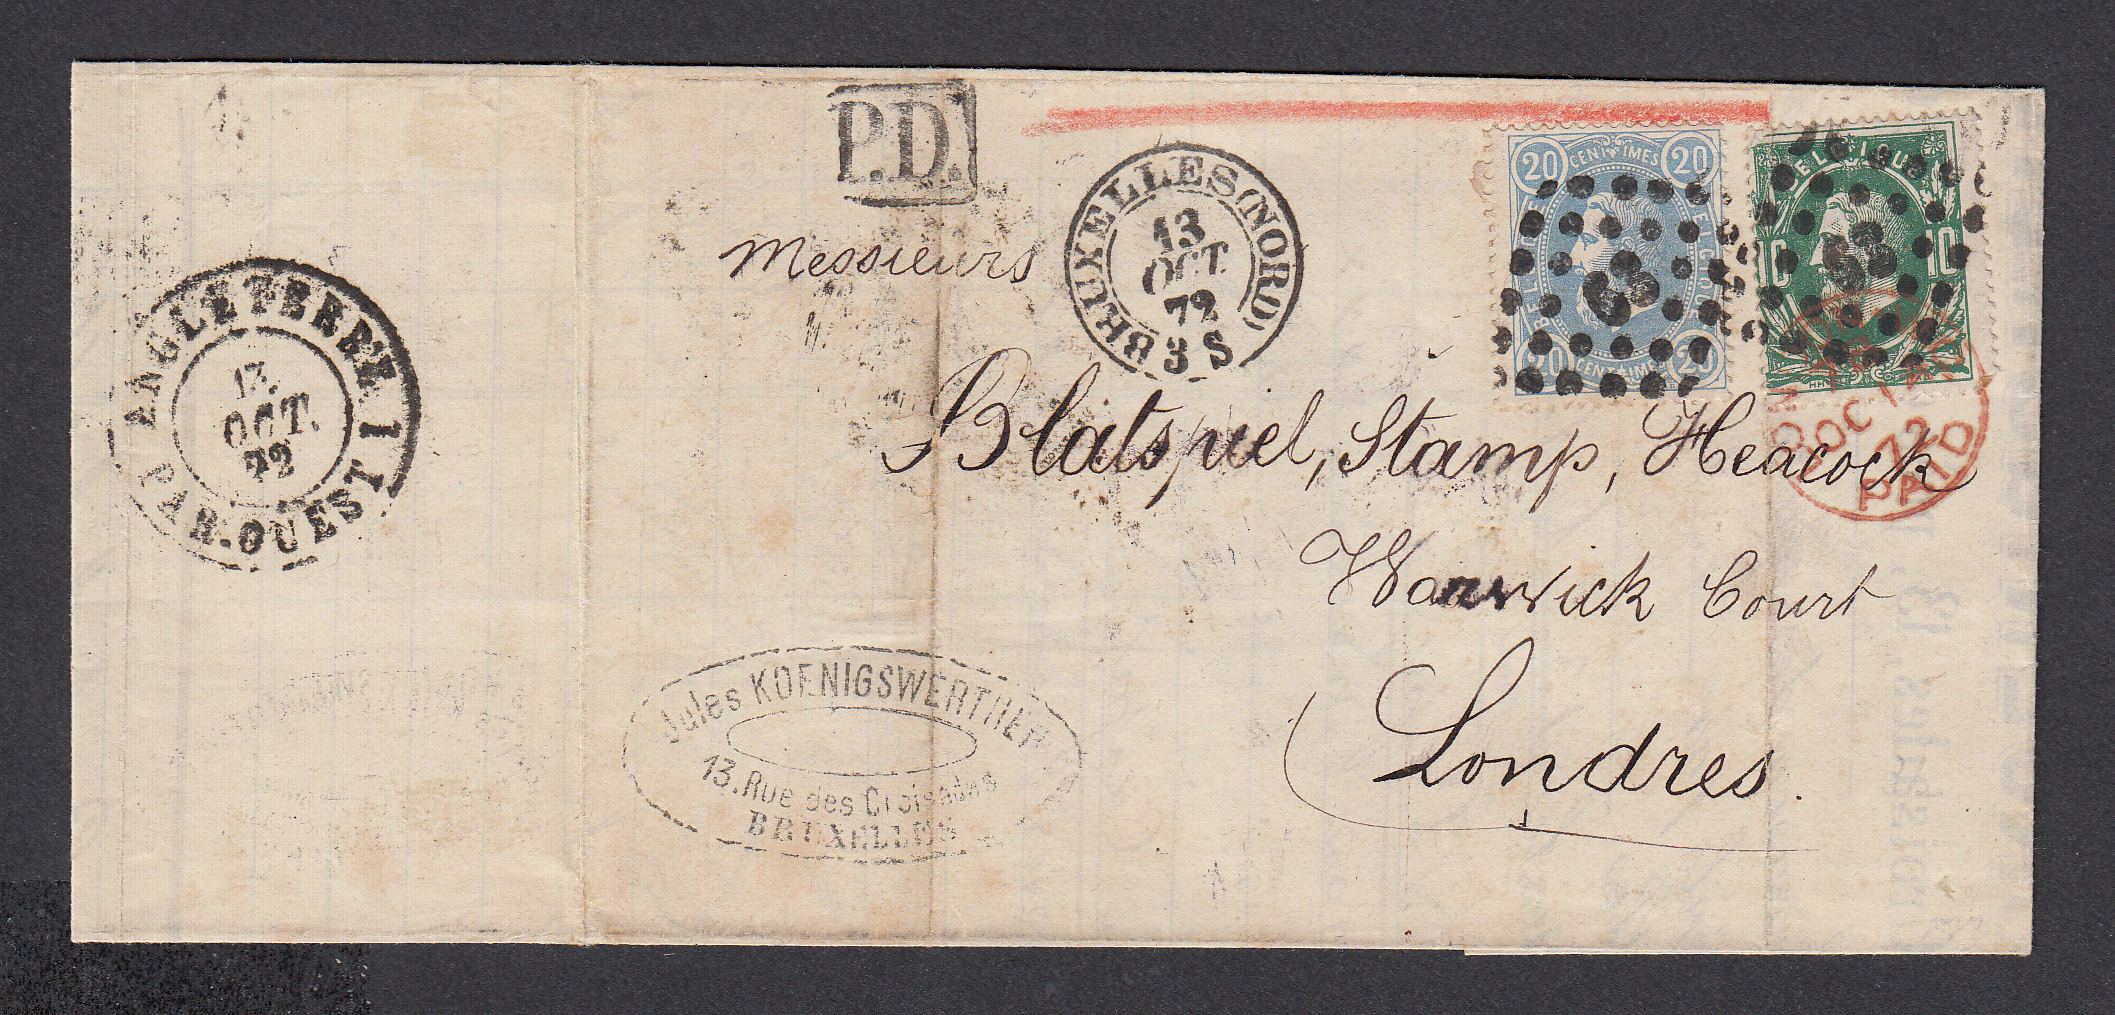 P.D.
BRUXELLES (NORD)
13
OCT.
72
3 S
20 CENTIMES 20
20 CENTIMES 20
BELGIQUE
10 10
63
63
PAID
OC
72
ANGLETERRE 1
PAR OUEST 1
13
OCT.
72
Messieurs
Blatspiel, Stamp, Heacock
Warwick Court
Londres.
Jules KOENIGSWERTHER
13. Rue des Croisades
BRUXELLES